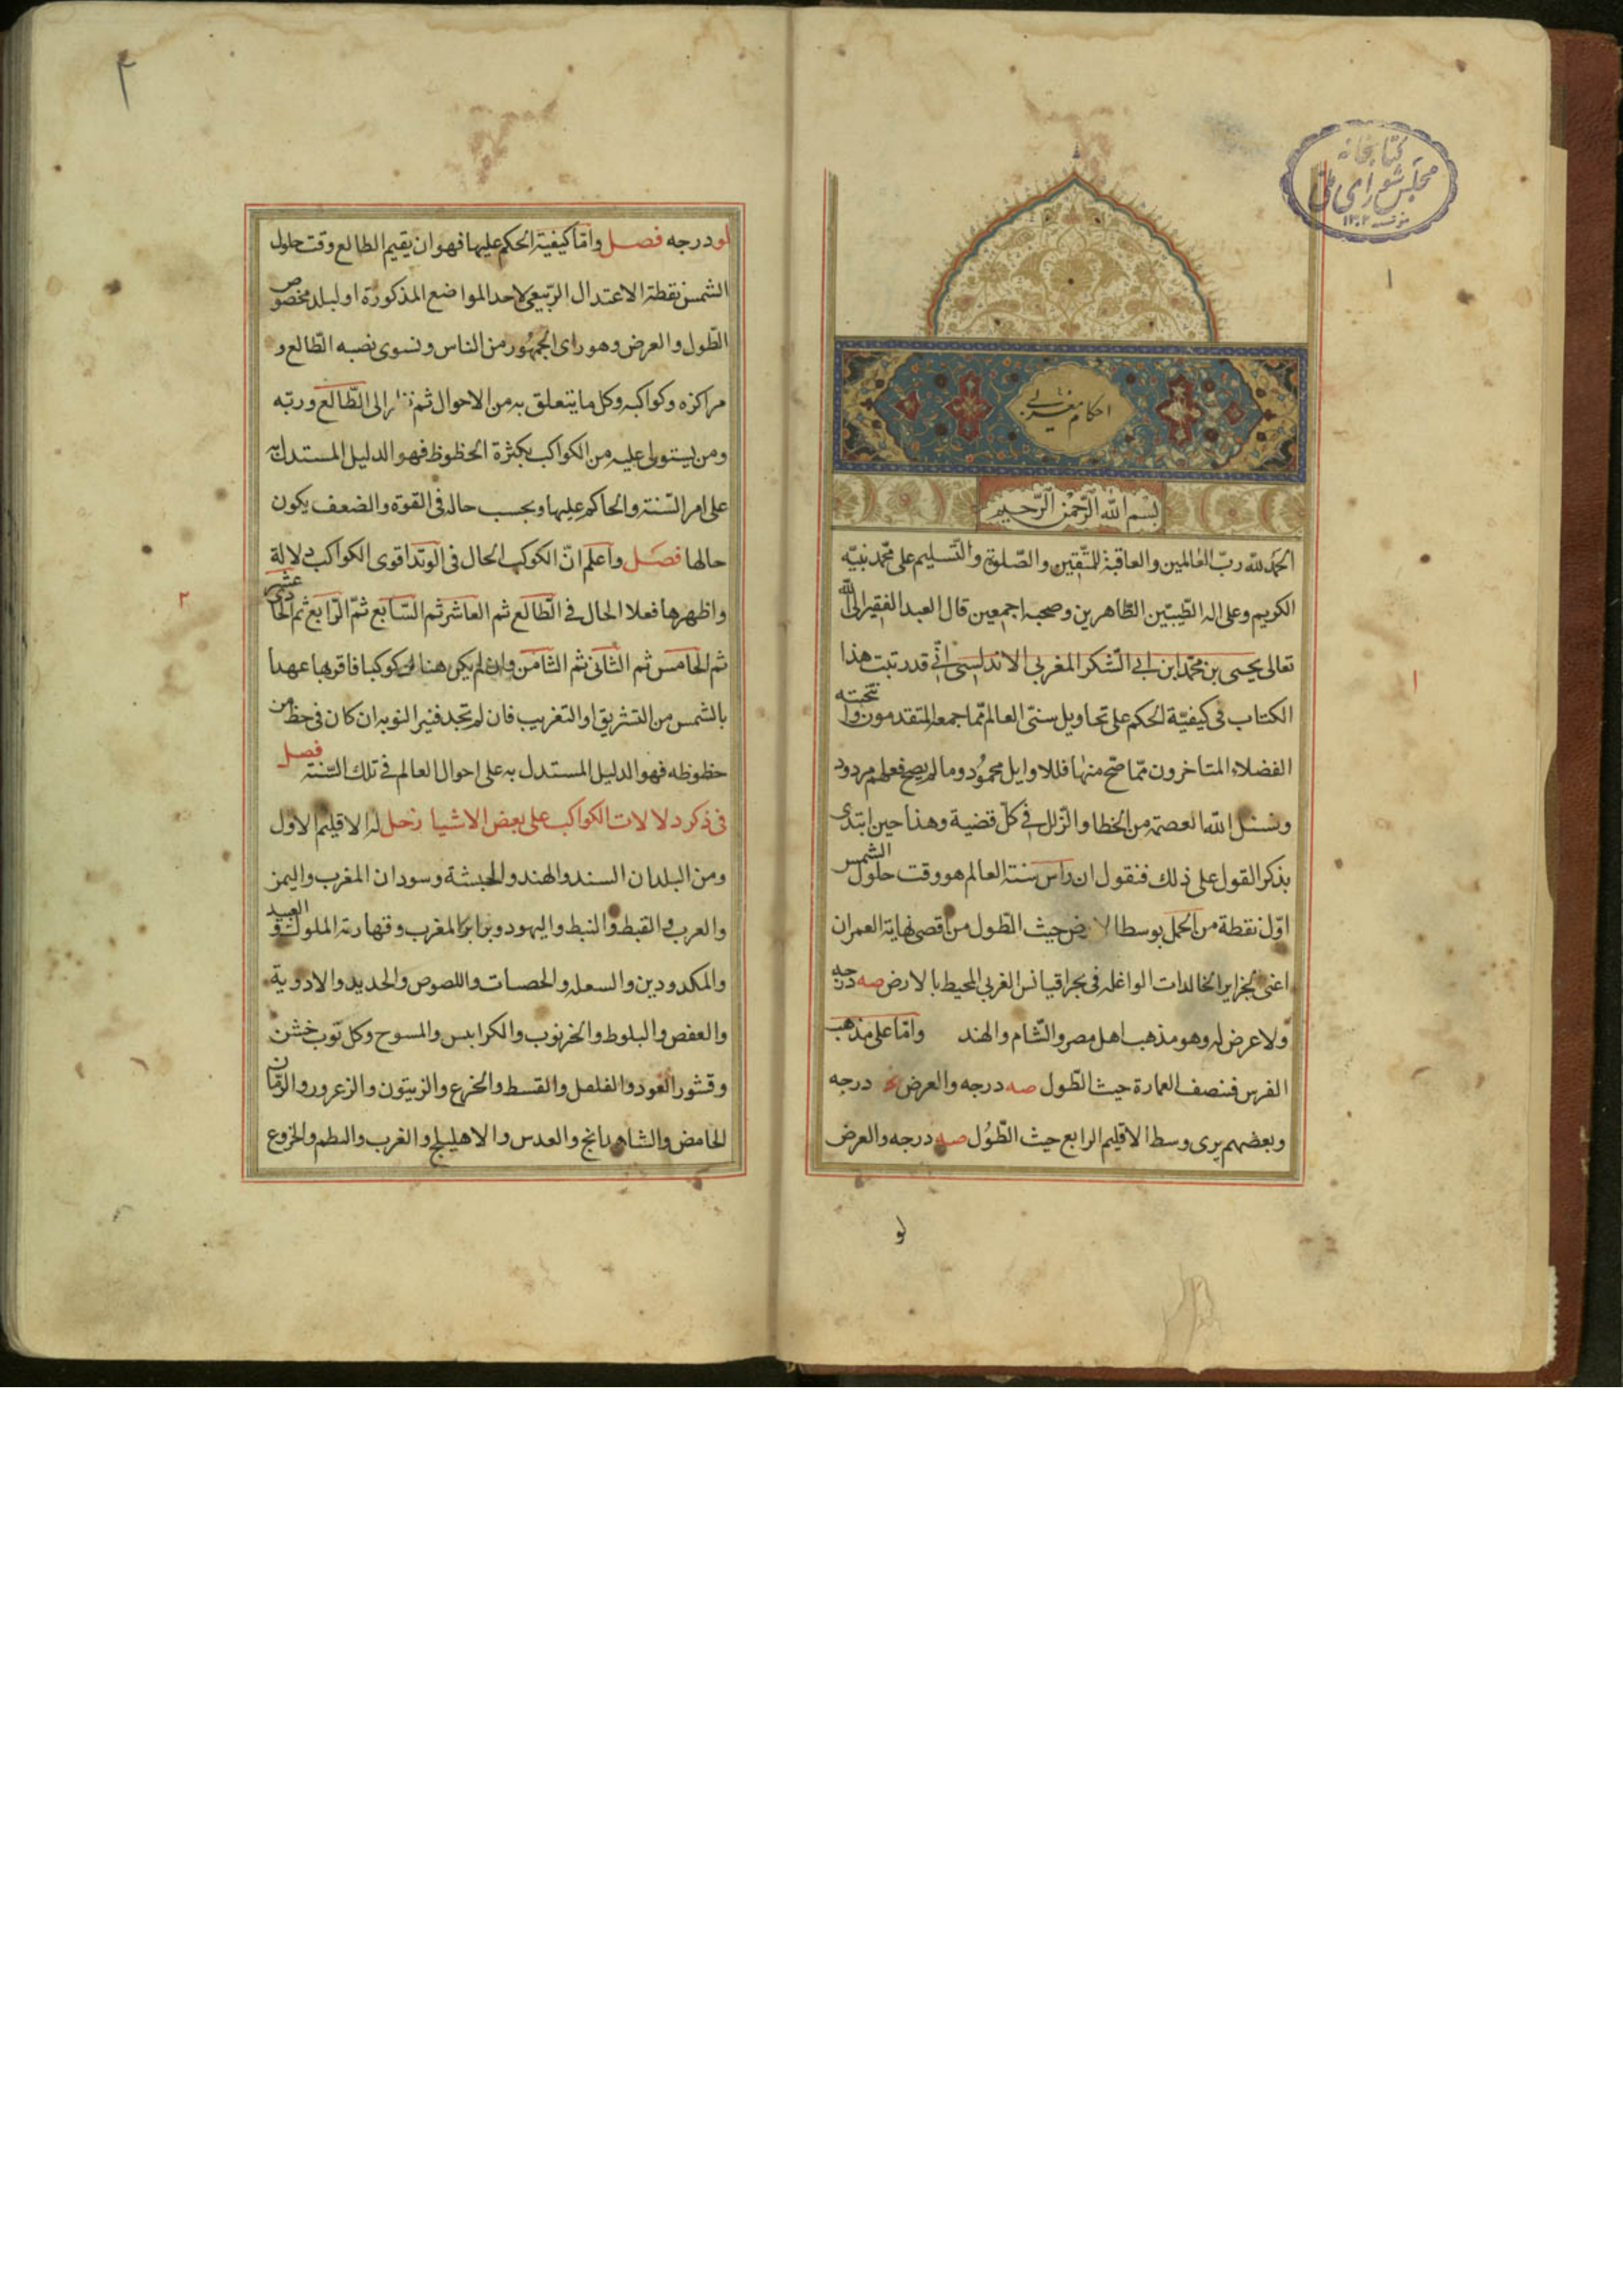 كتابخانه
مجلس شورای ملی
۱۳۰۲
احكام مغربى
بسم الله الرحمن الرحيم
الحمد لله رب العالمين والعاقبة للمتقين والصلوة والتسليم على محمد نبيه
الكريم وعلى اله الطيبين الطاهرين وصحبه اجمعين قال العبد الفقير الى الله
تعالى يحيى بن محمد ابن ابى الشكر المغربى الاندلسى انى قد رتبت هذا
الكتاب فى كيفية الحكم على تحاويل سنى العالم مما جمعه المتقدمون و نتجته
الفضلاء المتاخرون مما صح منها فللاوايل محمود وما لم يصح فعلهم مردود
ونسئل الله العصمة من الخطا والزلل فى كل قضية وهذا حين ابتدى
بذكر القول على ذلك فنقول ان راس سنة العالم هو وقت حلول الشمس
اول نقطة من الحمل بوسط الارض حيث الطول من اقصى نهاية العمران
اعنى بجزاير الخالدات الواغله فى بحر اقيانس الغربى المحيط بالارض صه درجه
ولا عرض له وهو مذهب اهل مصر والشام والهند واما على مذهب
الفرس فنصف العمارة حيث الطول صه درجه والعرض درجه
وبعضهم يرى وسط الاقليم الرابع حيث الطول صه درجه والعرض
لو
۱
۱
۲
لو درجه فصل واما كيفية الحكم عليها فهو ان يقيم الطالع وقت حلول
الشمس نقطة الاعتدال الربيعى لاحد المواضع المذكورة او لبلد مخصوص
الطول والعرض وهو راى الجمهور من الناس ونسوى نصبه الطالع و
مراكزه وكواكبه وكل ما يتعلق به من الاحوال ثم الى الطالع وربه
ومن يستولى عليه من الكواكب بكثرة الحظوظ فهو الدليل المستدل به
على امر السنة والحاكم عليها وبحسب حاله فى القوة والضعف يكون
حالها فصل واعلم ان الكوكب الحال فى الوتد اقوى الكواكب دلالة
واظهرها فعلا الحال فى الطالع ثم العاشر ثم السابع ثم الرابع ثم الحادى عشر
ثم الخامس ثم الثانى ثم الثامن وان لم يكن هناك كوكبا فاقربها عهدا
بالشمس من التشريق او التغريب فان لم تجد فنير النوبه ان كان فى حظ من
حظوظه فهو الدليل المستدل به على احوال العالم فى تلك السنة فصل
فى ذكر دلالات الكواكب على بعض الاشيا زحل له الاقليم الاول
ومن البلدان السند والهند والحبشة وسودان المغرب واليمن
والعرب والقبط والنبط واليهود وبرابر المغرب وقهارمة الملوك والعبيد
والمكدودين والسعله والحصات واللصوص والحديد والادوية
والعفص والبلوط والخرنوب والكرابيس والمسوح وكل ثوب خشن
وقشور العود والفلفل والقسط والخرع والزيتون والزعرور والرمان
الحامض والشاهدانج والعدس والاهليلج والغرب والبطم والخروع